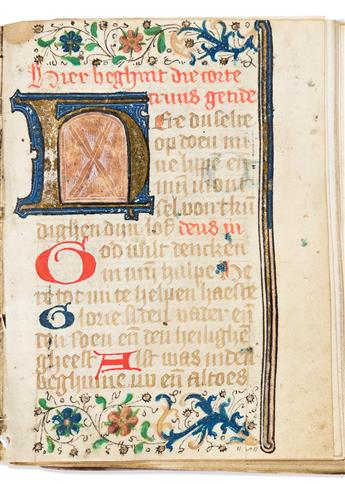 Hier beghint die corte
cruus getide
Here du selte
op doen mi
ne lippen eñ
mijn mont
sel vontkū
dighen dijn lof deus in
God wilt dencken
in mijn hulpe He
re tot mi te helpen haeste
Glorie si den vader eñ
den soen eñ den heilighē
gheest Alst was inden
beghinne nu eñ altoes